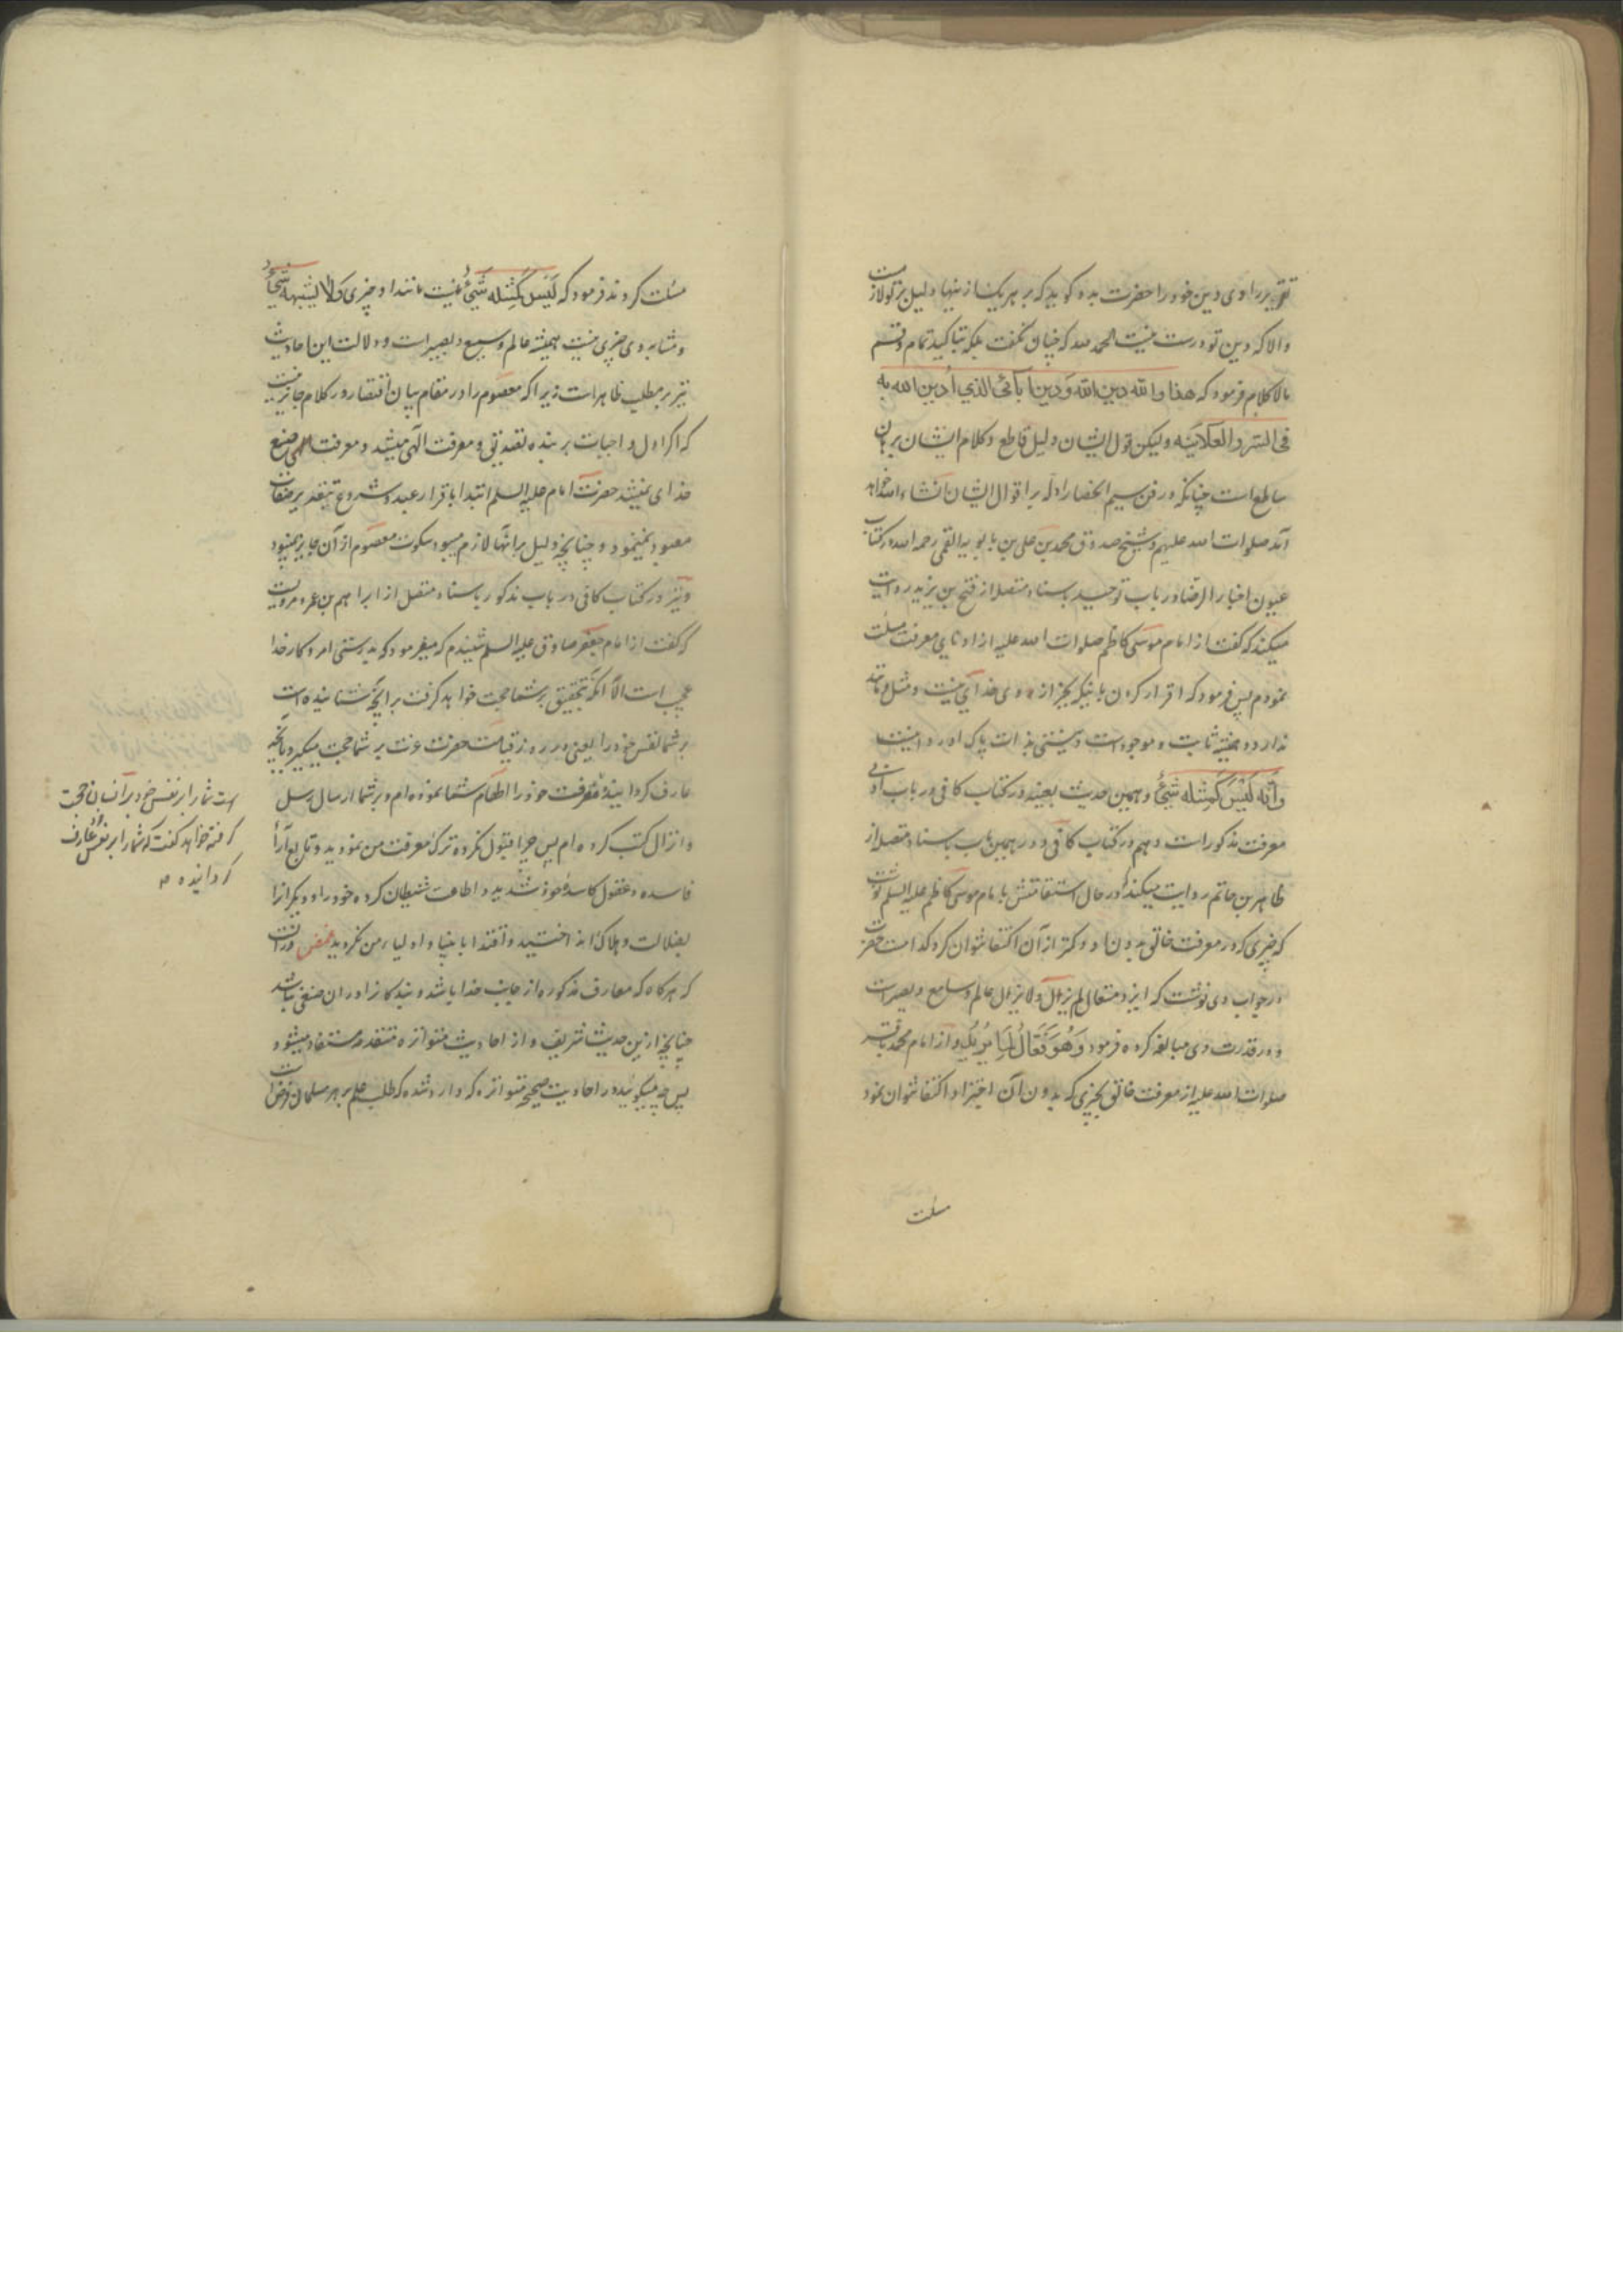 تقریر راوی دین خود را حضرت بده کوید که بر هر یک از ینها دلیل بر تو لازمست
والا که دین تو درست نیست الحمد لله که چنان نکفت بلکه بتاکید تمام و قسم
بالا کلام فرمود که هذا والله دین الله ودین آبائی الذی أدین الله به
فی السر والعلانیه ولیکن قول ایشان دلیل قاطع وکلام ایشان برهان
ساطع است چنانکه در فن سیم انحصار ادله بر اقوال ایشان انشاء الله خواهد
آمد صلوات الله علیهم وشیخ صدوق محمد بن علی بن بابویه القمی رحمه الله در کتاب
عیون اخبار الرضا در باب توحید باسناد متصل از فتح بن یزید روایت
میکند که گفت از امام موسی کاظم صلوات الله علیه از ادنای معرفت مسئلت
نمودم پس فرمود که اقرار کردن باینکه بجز از وی خدایی نیست ومثل ومانند
ندارد و همیشه ثابت و موجود است ونیستی بذات پاک او روا نیست
وأنّه لیس کمثله شئ وهمین حدیث بعینه در کتاب کافی در باب ادنی
معرفت مذکور است وهم در کتاب کافی ودر همین باب باسناد متصل از
طاهر بن حاتم روایت میکند که در حال استقامتش بامام موسی کاظم علیه السلم نوشت
که چیزی که در معرفت خالق بدون او وکمتر از آن اکتفا نتوان کرد کدامست حضرت
در جواب وی نوشت که ایزد متعال لم یزل ولا یزال عالم وسامع وبصیر است
ودر قدرت وی مبالغه کرده فرمود وهو فعّال لما یرید واز امام محمد باقر
صلوات الله علیه از معرفت خالق بچیزی که بدون آن اجتزا و اکتفا نتوان نمود
مسئلت
مسئلت کردند فرمود که لیس کمثله شئ نیست مانند او چیزی ولا یشبهه شئ
ومشابه وی چیزی نیست همیشه عالم وسمیع وبصیر است ودلالت این احادیث
نیز بر مطلب ظاهر است زیرا که معصوم را در مقام بیان اقتصار در کلام جایز نیست
که اکر اول واجبات بر بنده تصدیق ومعرفت الهی میشد ومعرفت الهی صنع
خدای نمیشد حضرت امام علیه السلم ابتدا باقرار عبد وشروع بتقدیر صفات
معبود نمینمود وچنانچه دلیل برانها لازم میبود سکوت معصوم از آن جایز نمیبود
ونیز در کتاب کافی در باب مذکور باسناد متصل از ابراهیم بن عمر مرویست
که گفت از امام جعفر صادق علیه السلم شنیدم که میفرمود که بدرستی امر وکار خدا
عجیب است الّا آنکه بتحقیق بر شما حجت خواهد کرفت بر انچه شناسانیده است
بر شما نفس خود را یعنی در روز قیامت حضرت عزت بر شما حجت میکیرد بانچه
عارف کردانیده معرفت خود را اطعام شما نموده ام وبر شما ارسال رسل
وانزال کتب کرده ام پس چرا قبول نکرده ترک معرفت من نمودید وتابع آراء
فاسده وعقول کاسده خود شدید واطاعت شیطان کرده خود را ودیکرانرا
بضلالت وهلاک انداختید واقتدا بانبیا واولیاء من نکردید مخفی ورزانست
که هرکاه که معارف مذکوره از جانب خدا باشد وبندکانرا در ان صنعی نباشد
چنانچه از ین حدیث شریف واز احادیث متواتره متقدمه مستفاد میشود
پس چه میکوئید در احادیث صحیحه متواتره که وارد شده که طلب علم بر هر مسلمان فرض است
است شما را بر نفس خود بر آنسان حجت
کرفته خواهد گفت که شما را بر نفس خود عارف
کردانیده ام